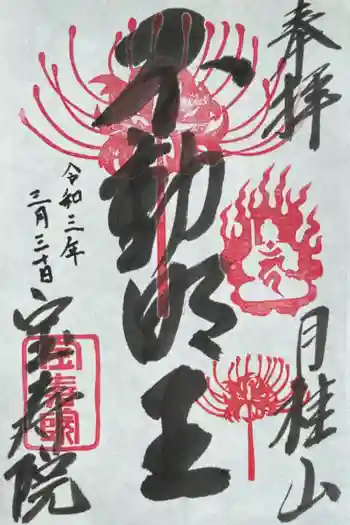 奉拝
月桂山
不動明王
令和三年
三月三十日